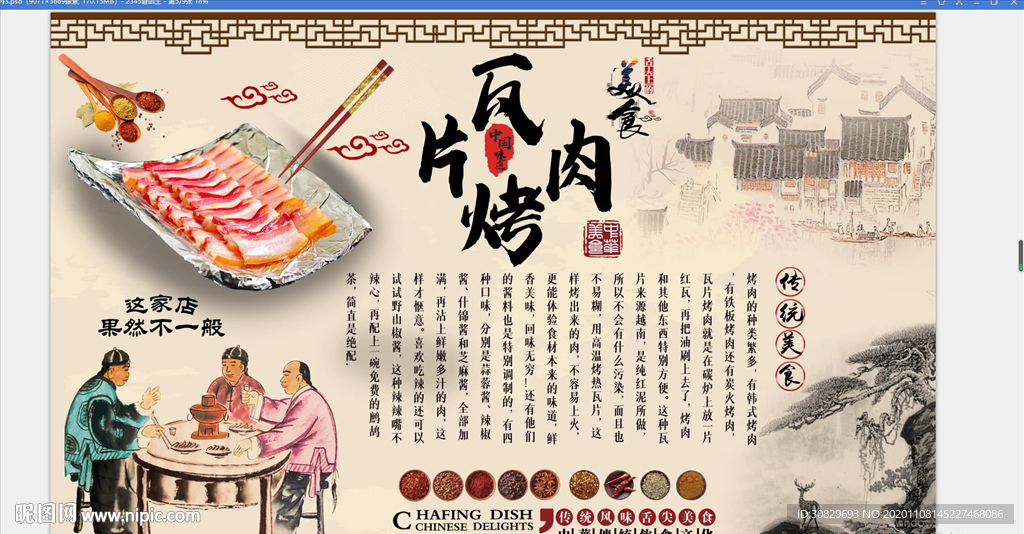 瓦
片
烤
肉
中国
味道
舌尖上的
美食
中华
美食
这家店
果然不一般
传统美食
烤肉的种类繁多，有韩式烤肉
，有铁板烤肉还有炭火烤肉，
瓦片烤肉就是在碳炉上放一片
红瓦，再把油刷上去了，烤肉
和其他东西特别方便。这种瓦
片来源越南，是纯红泥所做
所以不会有什么污染，而且也
不易糊，用高温烤热瓦片，这
样烤出来的肉，不容易上火，
更能体验食材本来的味道，鲜
香美味，回味无穷！还有他们
的酱料也是特别调制的，有四
种口味，分别是蒜蓉酱，辣椒
酱，什锦酱和芝麻酱，全部加
满，再沾上鲜嫩多汁的肉，这
样才惬意。喜欢吃辣的还可以
试试野山椒酱，这种辣辣嘴不
辣心，再配上一碗免费的鹧鸪
茶，简直是绝配.
CHAFING DISH
CHINESE DELIGHTS
传统风味舌尖美食
昵图网 www.nipic.com
ID:30829693 NO:20201108145227468086